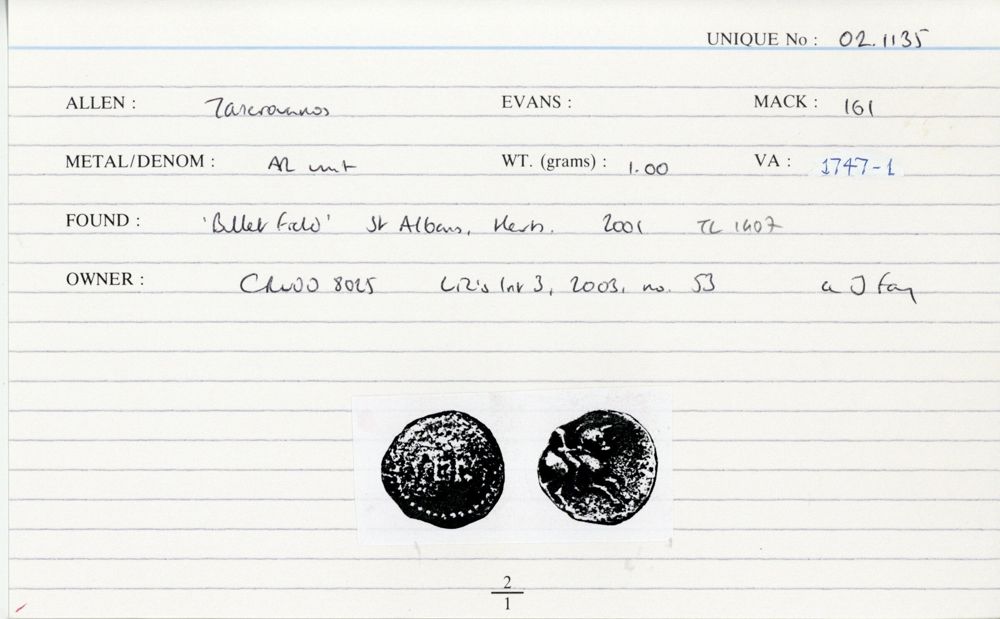 UNIQUE No : 02.1135
ALLEN : Tasciovanos EVANS : MACK : 161
METAL/DENOM : AR unit WT. (grams) : 1.00 VA : 1747-1
FOUND : 'Bullet Field' St Albans, Herts. 2001 TL 1407
OWNER : 8025 Liz's Inv 3, 2003, no. 53
2
1